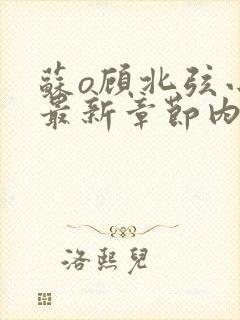 蘇o顾北弦
最新章節内
洛熙兒